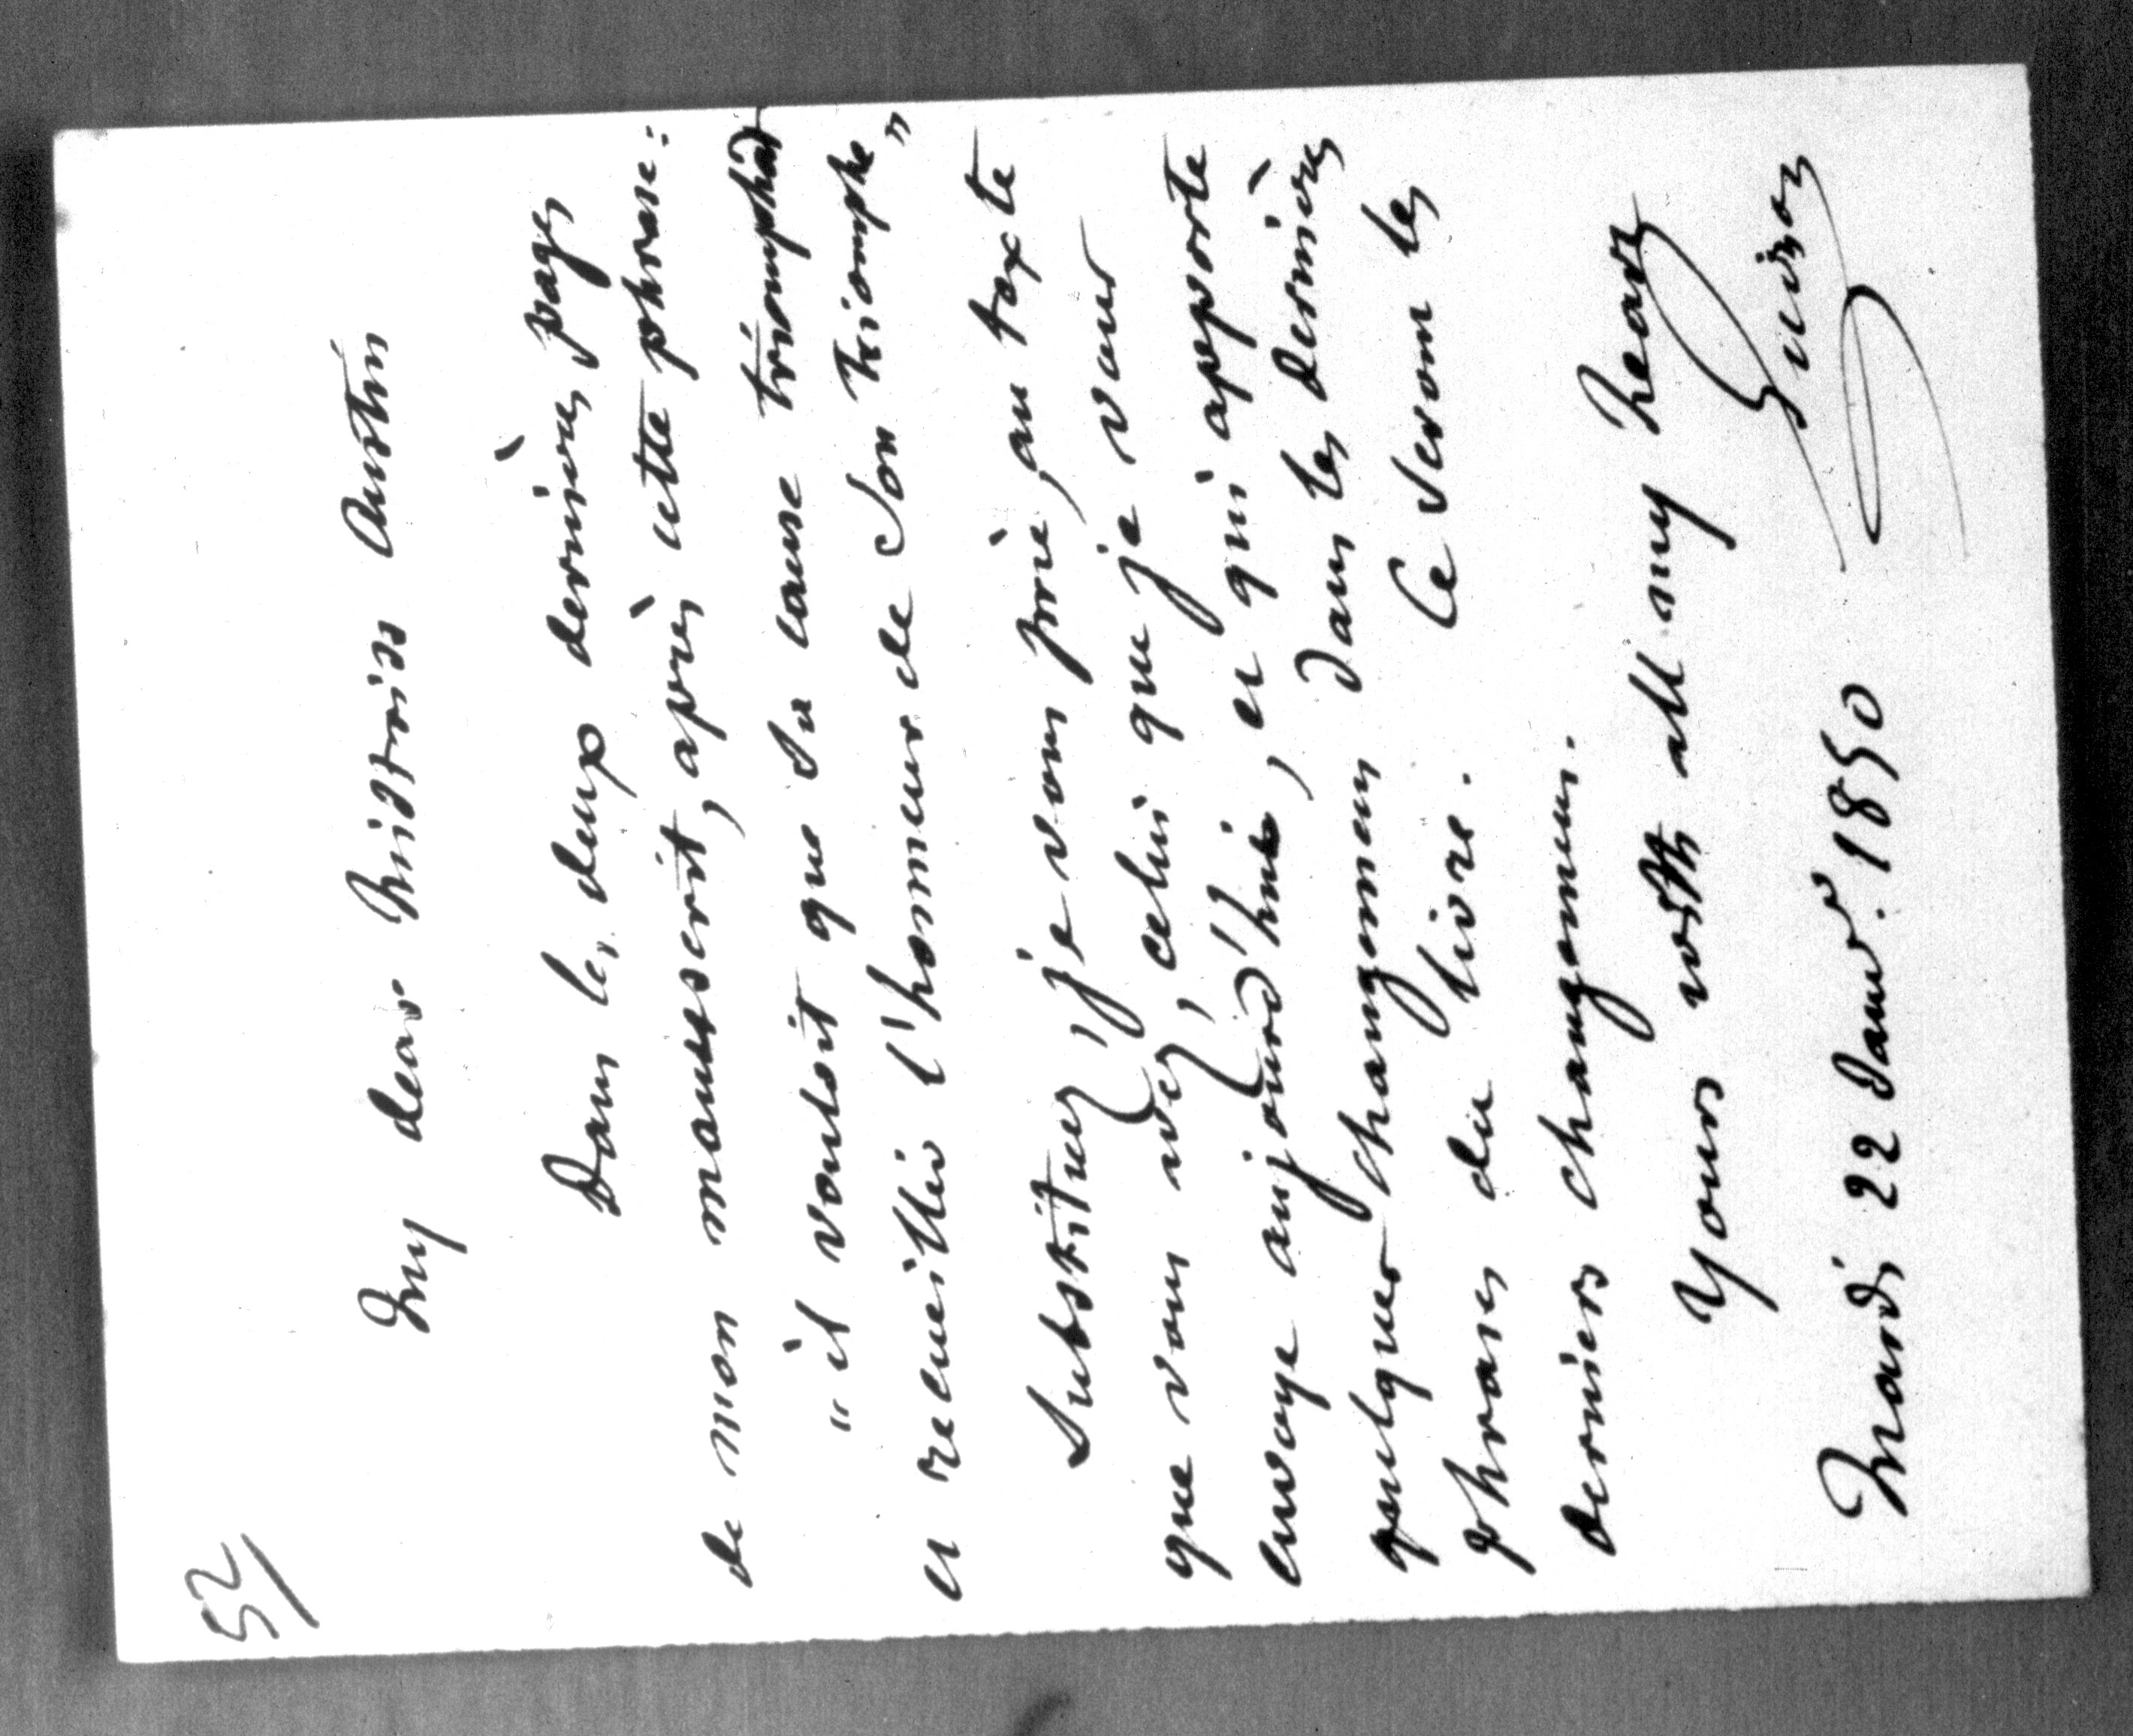 52
My dear Mistriss Austin
Dans les deux dernières pages
de mon manuscrit, après cette phrase:
"il vouloit que sa cause triomphât
et recueillir l'honneur de son triomphe"
Substituez, je vous prie, au texte
que vous avez, celui que je vous
envoye aujourd'hui, et qui apporte
quelques changemens dans les dernières
phrases du livre. Ce seront les
derniers changemens.
Yours with all my heart
Guizot
Mardi 22 Janvr. 1850